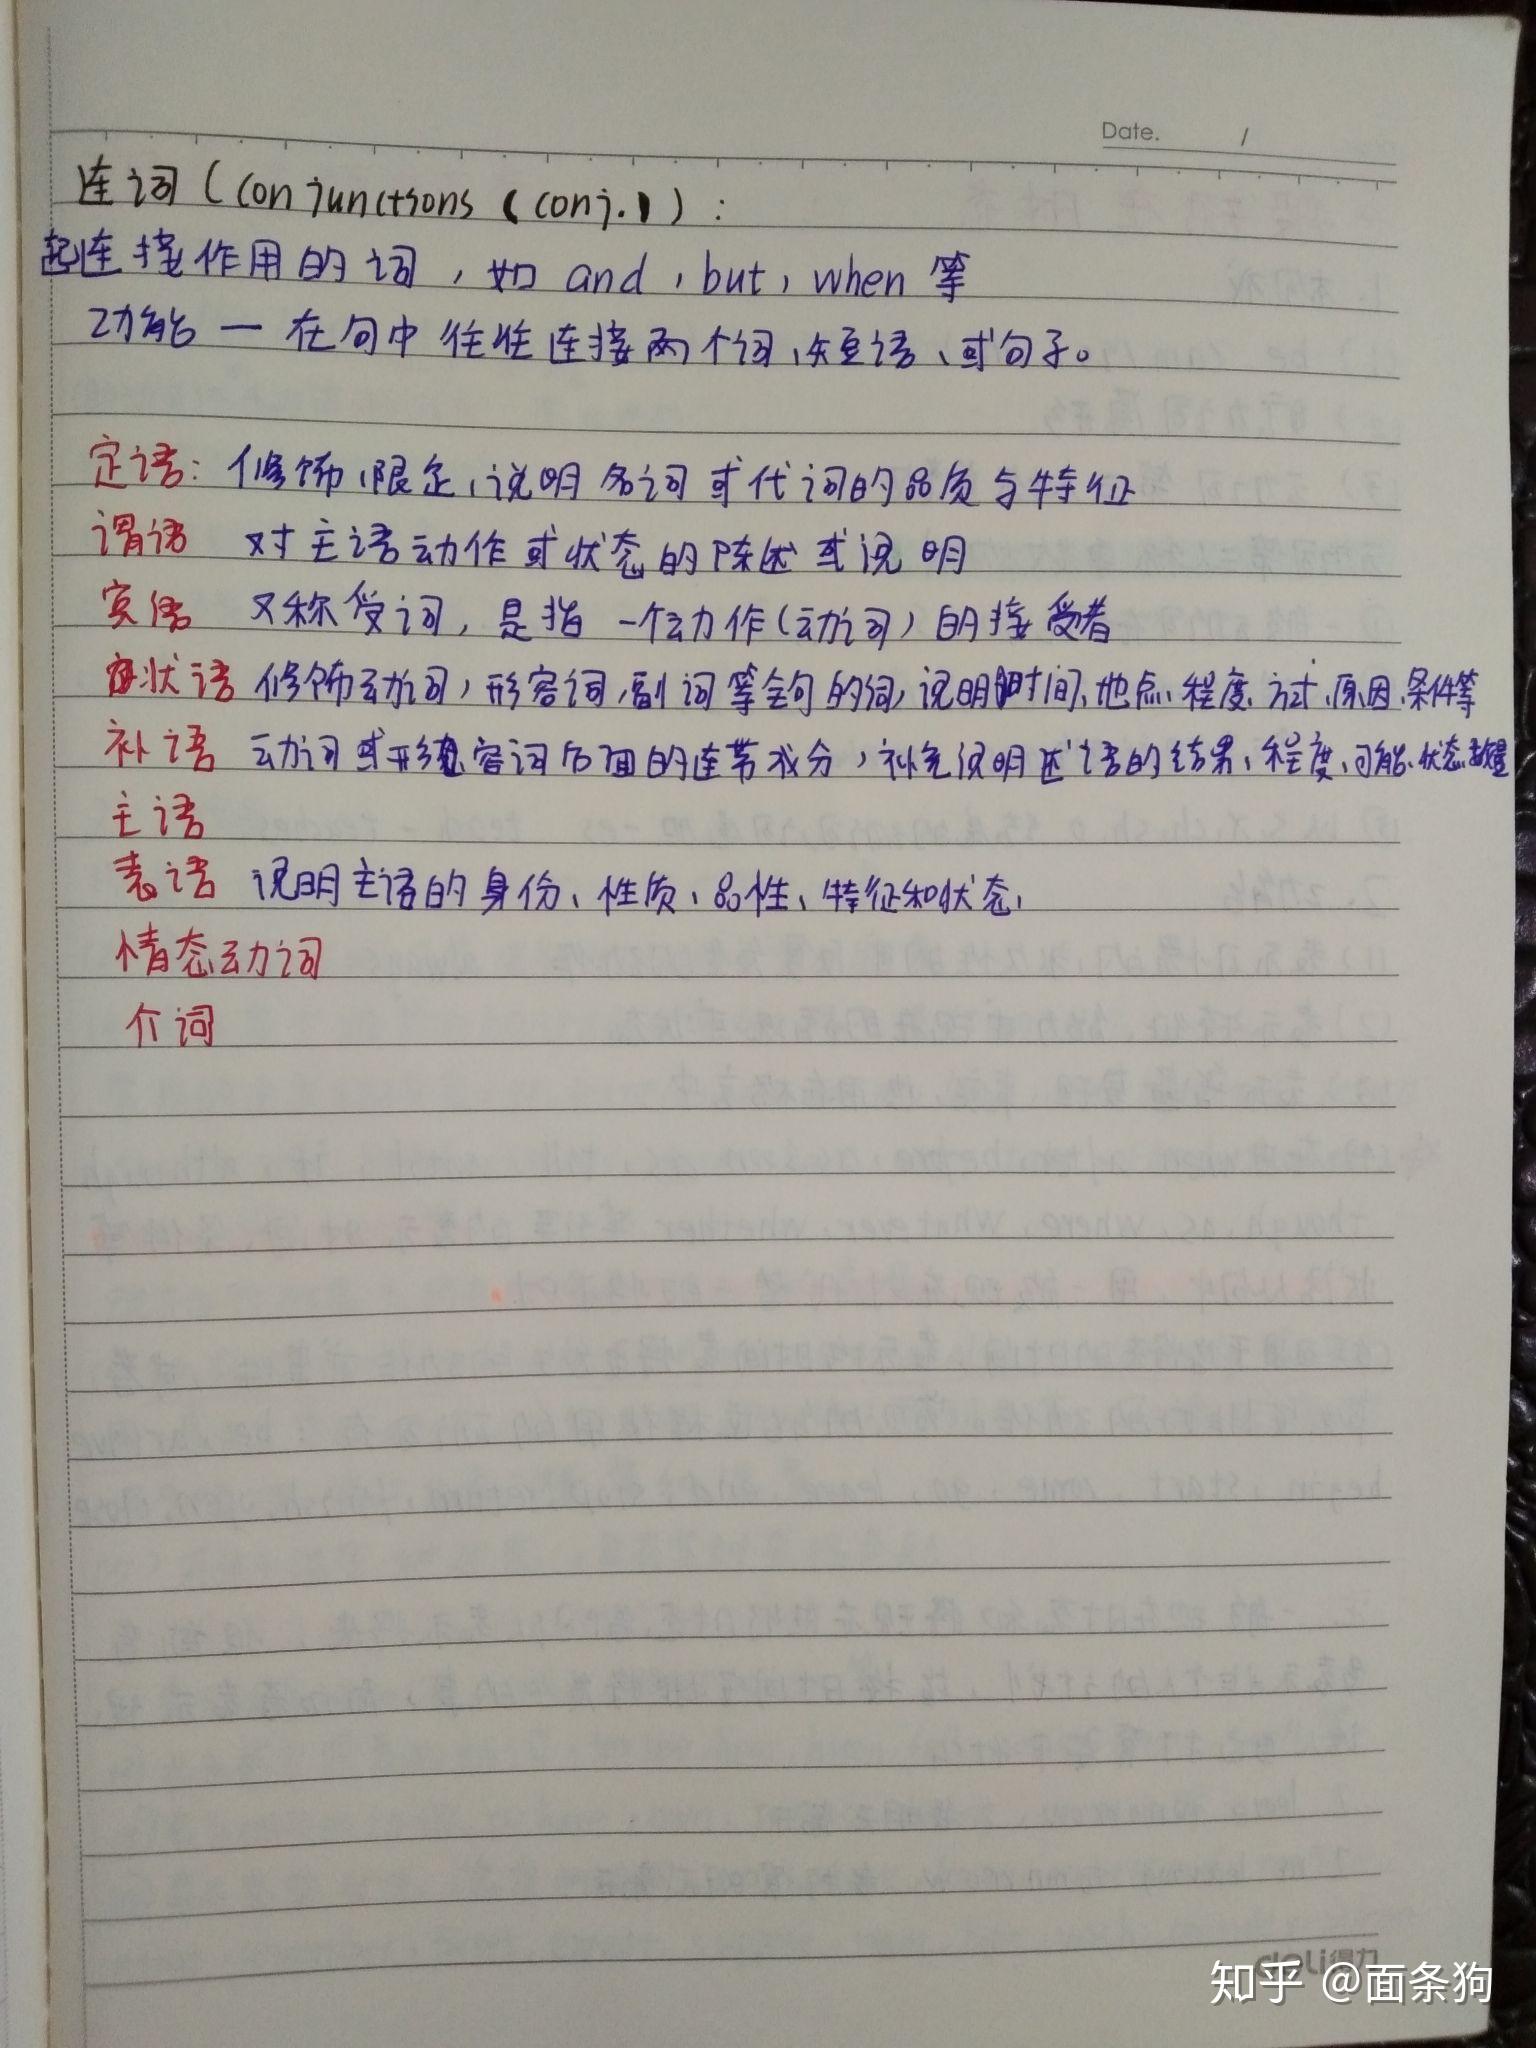 Date. /
连词（conjunctions（conj.））：
起连接作用的词，如 and，but，when 等
功能 — 在句中往往连接两个词、短语、或句子。
定语：修饰、限定、说明名词或代词的品质与特征
谓语 对主语动作或状态的陈述或说明
宾语 又称受词，是指一个动作（动词）的接受者
状语 修饰动词，形容词，副词等全句的词，说明时间、地点、程度、方式、原因、条件等
补语 动词或形容词后面的连带成分，补充说明述语的结果、程度、可能、状态、数量
主语
表语 说明主语的身份、性质、品性、特征和状态、
情态动词
介词
deli得力
知乎 @面条狗